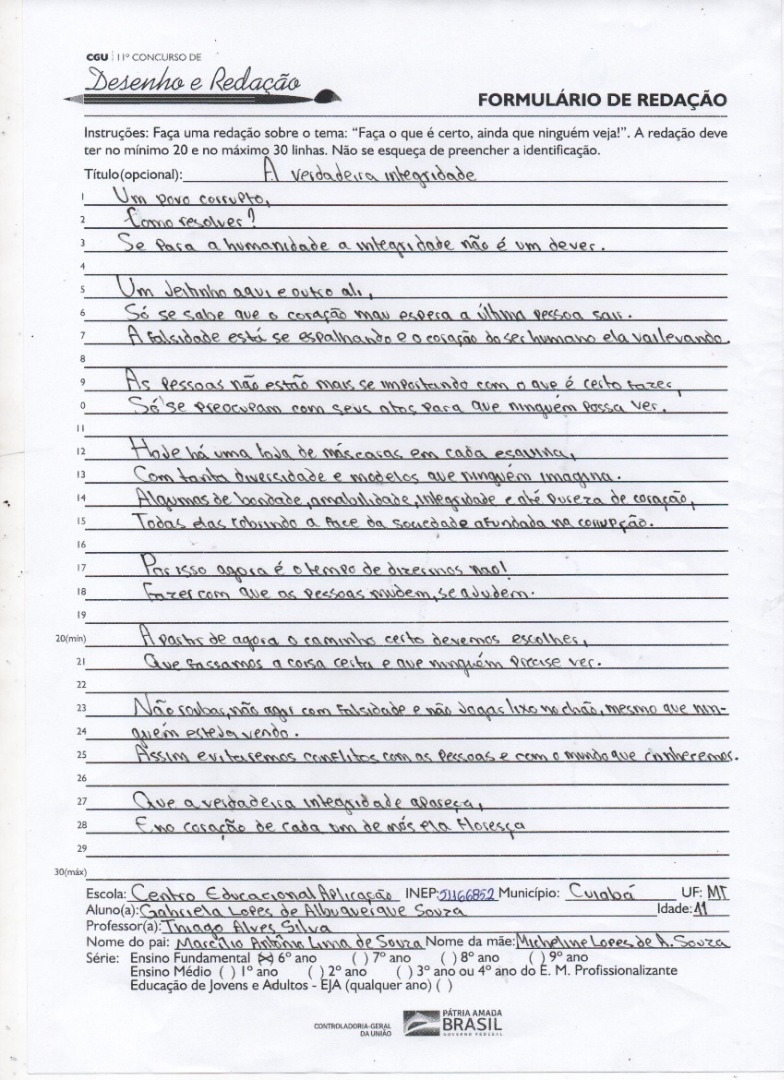 CGU | 11º CONCURSO DE
Desenho e Redação
FORMULÁRIO DE REDAÇÃO
Instruções: Faça uma redação sobre o tema: “Faça o que é certo, ainda que ninguém veja!”. A redação deve
ter no mínimo 20 e no máximo 30 linhas. Não se esqueça de preencher a identificação.
Título(opcional): A verdadeira integridade
1 Um povo corrupto,
2 Como resolver?
3 Se para a humanidade a integridade não é um dever.
4
5 Um Jeitinho aqui e outro ali,
6 Só se sabe que o coração mau espera a última pessoa sair.
7 A falsidade está se espalhando e o coração do ser humano ela vai levando.
8
9 As pessoas não estão mais se importando com o que é certo fazer,
0 Só se preocupam com seus atos para que ninguém possa ver.
11
12 Hoje há uma loja de máscaras em cada esquina,
13 Com tanta diversidade e modelos que ninguém imagina.
14 Algumas de bondade, amabilidade, integridade e até pureza de coração,
15 Todas elas cobrindo a face da sociedade afundada na corrupção.
16
17 Por isso agora é o tempo de dizermos não!
18 Fazer com que as pessoas mudem, se ajudem.
19
20(mín) A partir de agora o caminho certo devemos escolher,
21 Que façamos a coisa certa e que ninguém precise ver.
22
23 Não roubar, não agir com falsidade e não jogar lixo no chão, mesmo que nin-
24 guém esteja vendo.
25 Assim evitaremos conflitos com as pessoas e com o mundo que conhecemos.
26
27 Que a verdadeira integridade apareça,
28 E no coração de cada um de nós ela floresça
29
30(máx)
Escola: Centro Educacional Aplicação INEP: 51166852 Município: Cuiabá UF: MT
Aluno(a): Gabriela Lopes de Albuquerque Souza Idade: 11
Professor(a): Thiago Alves Silva
Nome do pai: Marcílio Antônio Lima de Souza Nome da mãe: Micheline Lopes de A. Souza
Série: Ensino Fundamental (x) 6º ano ( ) 7º ano ( ) 8º ano ( ) 9º ano
Ensino Médio ( ) 1º ano ( ) 2º ano ( ) 3º ano ou 4º ano do E. M. Profissionalizante
Educação de Jovens e Adultos - EJA (qualquer ano) ( )
CONTROLADORIA-GERAL
DA UNIÃO
PÁTRIA AMADA
BRASIL
GOVERNO FEDERAL